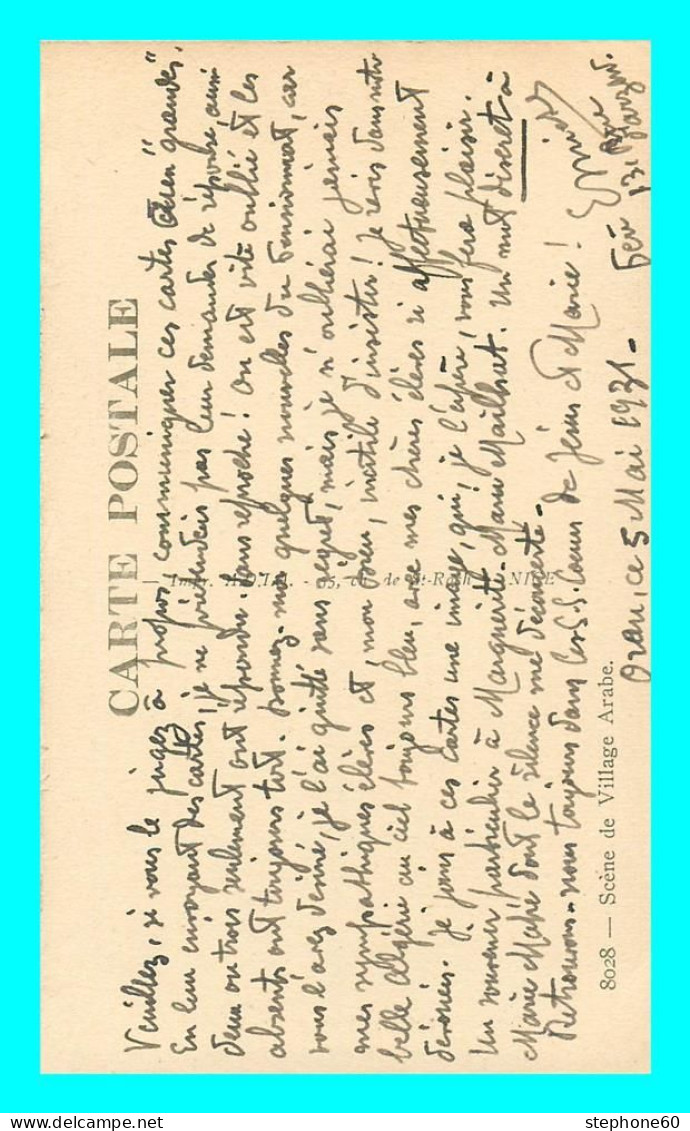 CARTE POSTALE
Veuillez, si vous le jugez à propos communiquer ces cartes "aux grandes".
En leur envoyant des cartes, je ne prétendais pas leur demander de réponse, aussi
deux ou trois seulement ont répondu. Sans reproche! On est vite oublié et les
absents ont toujours tort. Donnez-moi quelques nouvelles du Pensionnat, car
vous l'avez désiré, je l'ai quitté sans regret, mais je n'oublierai jamais
mes sympathiques élèves et, mon Dieu, inutile d'insister! Je revis dans notre
belle Algérie au ciel toujours bleu, avec mes chères élèves si affectueusement
dévouées. Je joins à ces cartes une image, qui, je l'espère, vous fera plaisir.
Un souvenir particulier à Marguerite-Marie Mailhat. Un mot discret à
Marie Mahé dont le silence me déconcerte.
Retrouvons-nous toujours dans les S.S. Cœurs de Jésus et Marie!
Oran, ce 5 Mai 1931.
8028 — Scène de Village Arabe.
stephone60